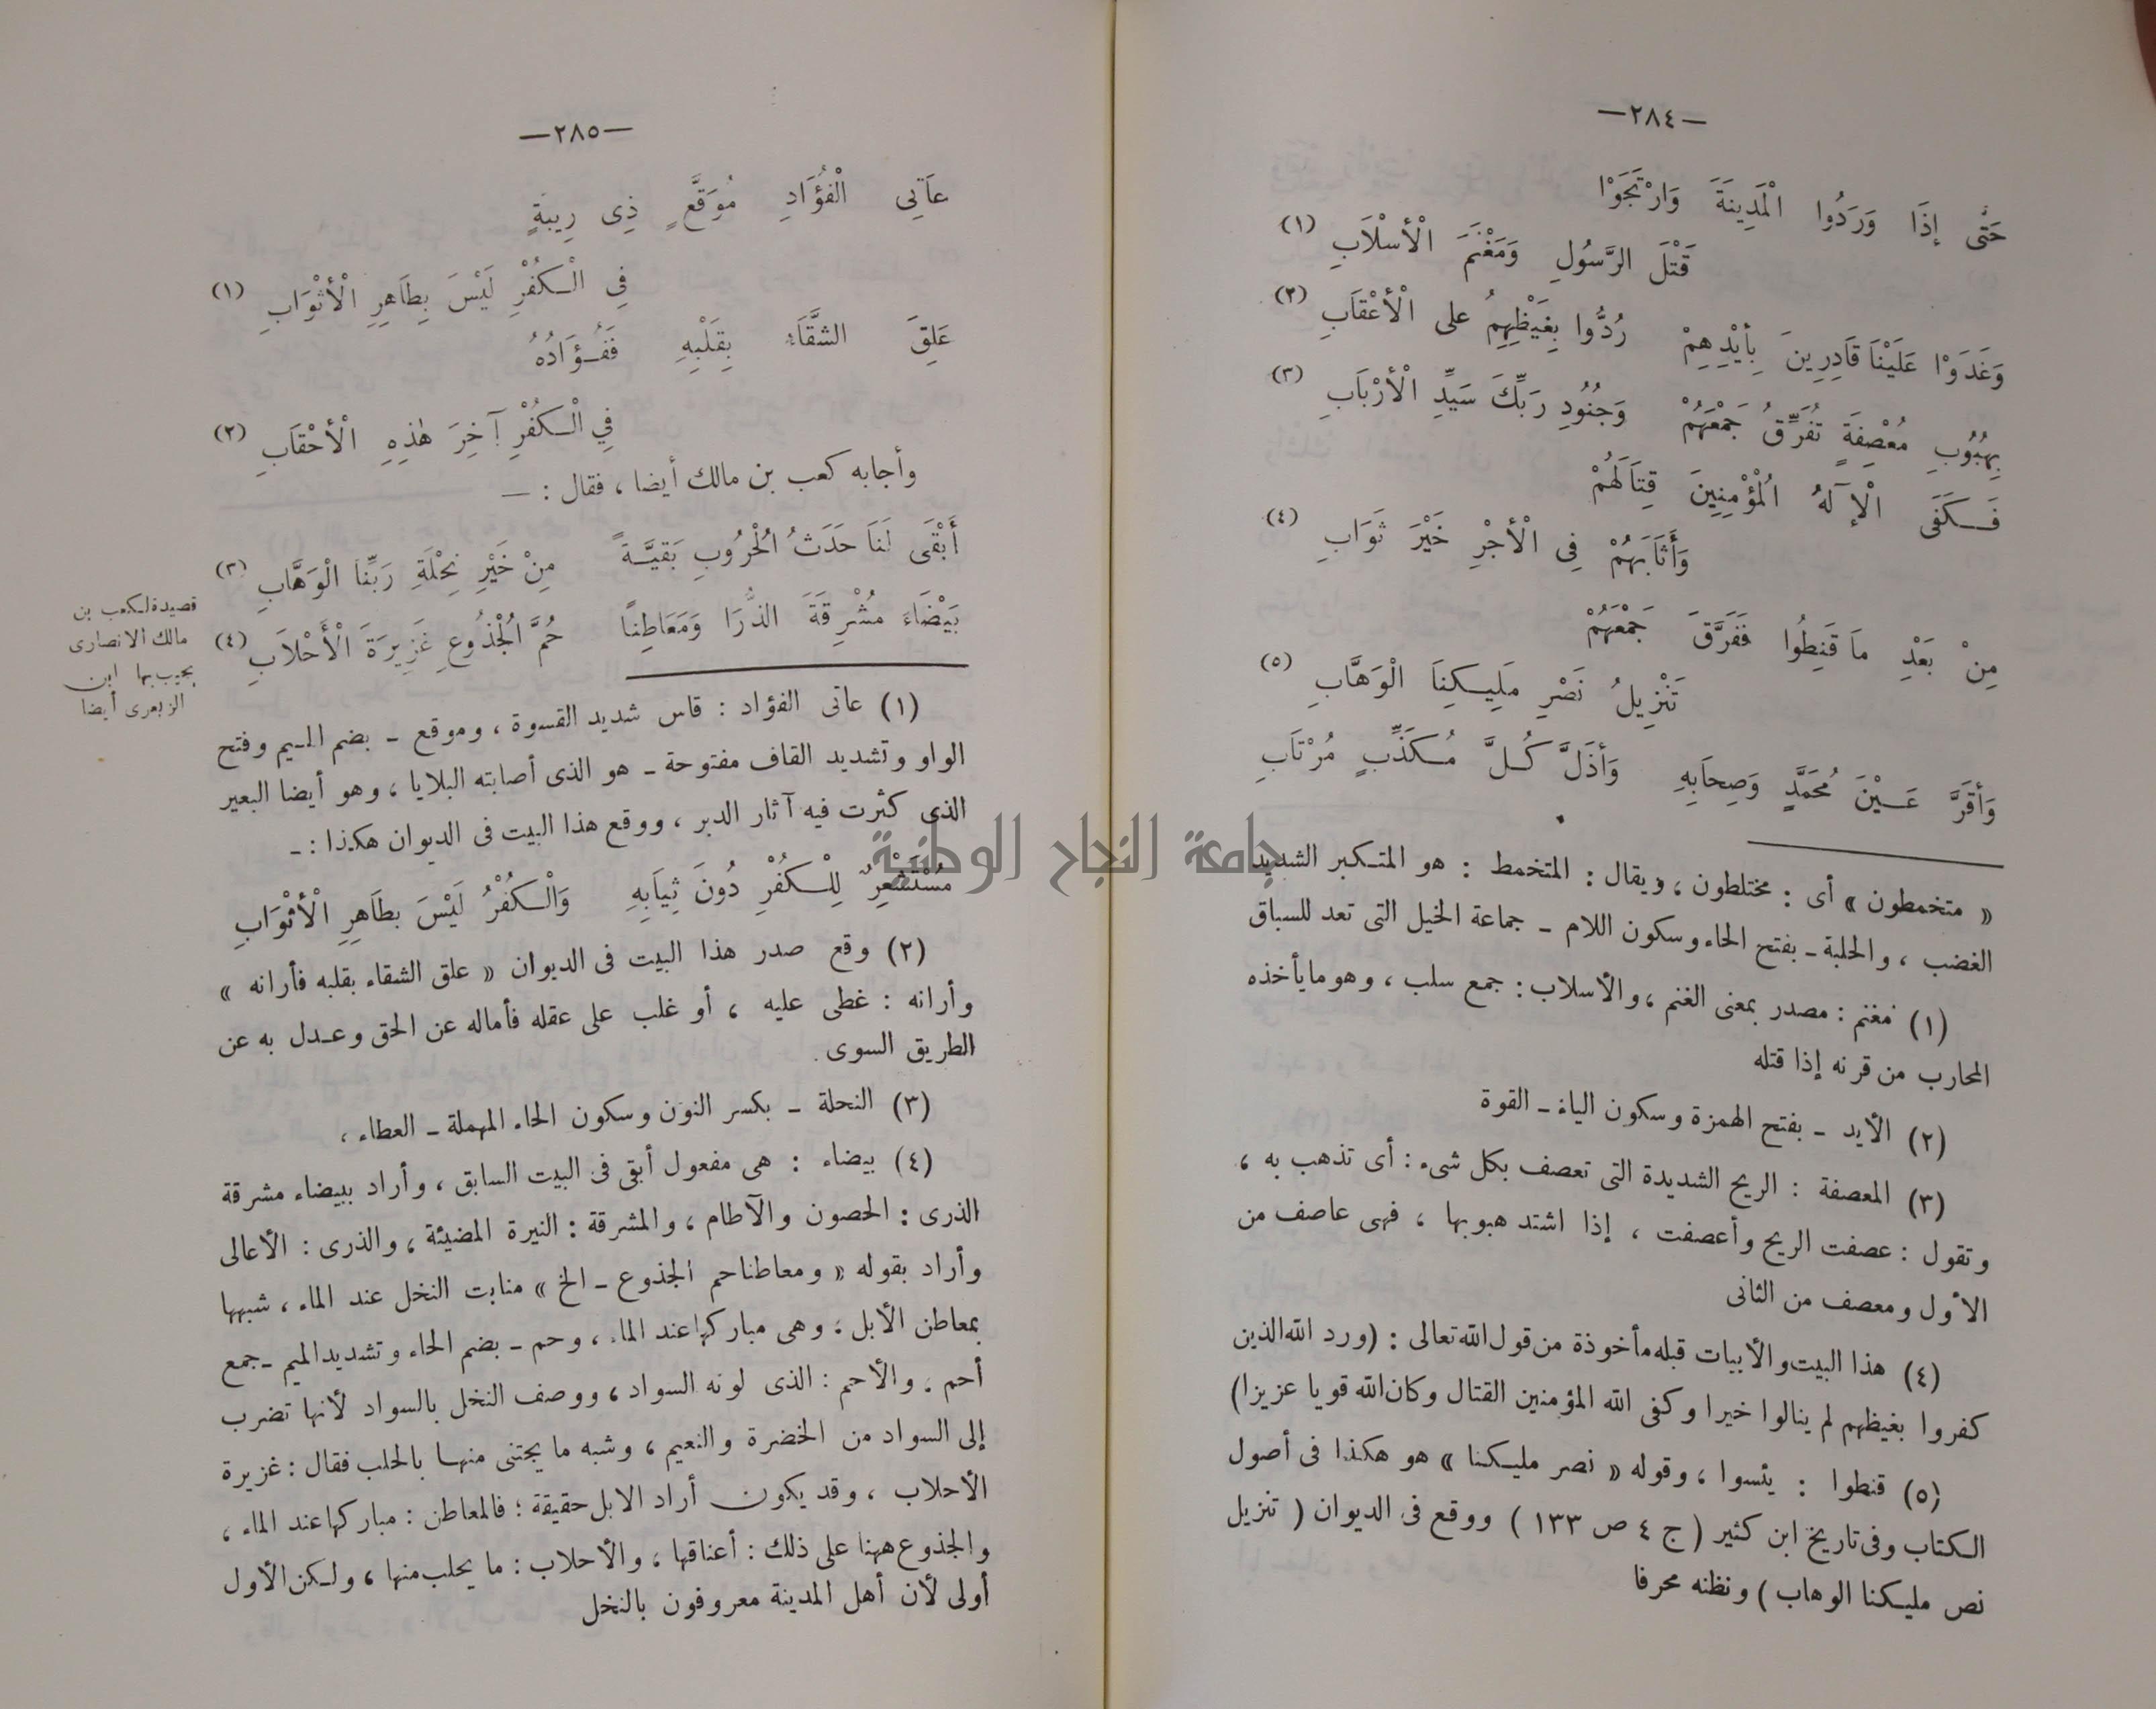 —٢٨٤—
حَتَّى إذَا وَرَدُوا الْمَدِينَةَ وَارْتَجَوْا
قَتْلَ الرَّسُولِ وَمَغْنَمَ الْأسْلَابِ (١)
وَغَدَوْا عَلَيْنَا قَادِرِينَ بِأَيْدِهِمْ رُدُّوا بِغَيْظِهِمُ على الْأعْقَابِ (٢)
بِهُبُوبِ مُعْصِفَةٍ تُفَرِّقُ جَمْعَهُمْ وَجُنُودِ رَبِّكَ سَيِّدِ الْأرْبَابِ (٣)
فَكَفَى الْإلهُ الْمُؤْمِنِينَ قِتَالَهُمْ
وَأَثَابَهُمْ فِى الْأجْرِ خَيْرَ ثَوَابِ (٤)
مِنْ بَعْدِ مَا قَنِطُوا فَفَرَّقَ جَمْعَهُمْ
تَنْزِيلُ نَصْرِ مَلِيكِنَا الْوَهَّابِ (٥)
وَأقَرَّ عَيْنَ مُحَمَّدٍ وَصِحَابِهِ وَأذَلَّ كُلَّ مُكَذِّبٍ مُرْتَابِ
« متخمطون » أى : مختلطون ، ويقال : المتخمط : هو المتكبر الشديد
الغضب ، والحلبة ـ بفتح الحاء وسكون اللام ـ جماعة الخيل التى تعد للسباق
(١) مغنم : مصدر بمعنى الغنم ، والأسلاب : جمع سلب ، وهو ما يأخذه
المحارب من قرنه إذا قتله
(٢) الأيد ـ بفتح الهمزة وسكون الياء ـ القوة
(٣) المعصفة : الريح الشديدة التى تعصف بكل شىء : أى تذهب به ،
وتقول : عصفت الريح وأعصفت ، إذا اشتد هبوبها ، فهى عاصف من
الأول ومعصف من الثانى
(٤) هذا البيت والأبيات قبله مأخوذة من قول الله تعالى : (ورد الله الذين
كفروا بغيظهم لم ينالوا خيرا وكفى الله المؤمنين القتال وكان الله قويا عزيزا)
(٥) قنطوا : يئسوا ، وقوله « نصر مليكنا » هو هكذا فى أصول
الكتاب وفى تاريخ ابن كثير ( ج ٤ ص ١٣٣ ) ووقع فى الديوان ( تنزيل
نص مليكنا الوهاب ) ونظنه محرفا
—٢٨٥—
عَاتِى الْفُؤَادِ مُوَقَّعٍ ذِى رِيبَةٍ
فِي الْكُفْرِ لَيْسَ بِطَاهِرِ الْأثْوَابِ (١)
عَلِقَ الشَّقَاءُ بِقَلْبِهِ فَفُؤَادُهُ
فِي الْكُفْرِ آخِرَ هٰذِهِ الْأحْقَابِ (٢)
وأجابه كعب بن مالك أيضا ، فقال : —
أَبْقَى لَنَا حَدَثُ الْحُرُوبِ بَقِيَّةً مِنْ خَيْرِ نِحْلَةِ رَبِّنَا الْوَهَّابِ (٣)
بَيْضَاءَ مُشْرِقَةَ الذُّرَا وَمَعَاطِنًا حُمَّ الْجُذُوعِ غَزِيرَةَ الْأَحْلَابِ (٤)
قصيدة لكعب بن
مالك الانصارى
يجيب بها ابن
الزبعرى أيضا
(١) عاتى الفؤاد : قاس شديد القسوة ، وموقع ـ بضم الميم وفتح
الواو وتشديد القاف مفتوحة ـ هو الذى أصابته البلايا ، وهو أيضا البعير
الذى كثرت فيه آثار الدبر ، ووقع هذا البيت فى الديوان هكذا : ـ
مُسْتَشْعِرٌ لِلْكُفْرِ دُونَ ثِيَابِهِ وَالْكُفْرُ لَيْسَ بِطَاهِرِ الْأثْوَابِ
(٢) وقع صدر هذا البيت فى الديوان « علق الشقاء بقلبه فأرانه »
وأرانه : غطى عليه ، أو غلب على عقله فأماله عن الحق وعدل به عن
الطريق السوى .
(٣) النحلة ـ بكسر النون وسكون الحاء المهملة ـ العطاء ،
(٤) بيضاء : هى مفعول أبقى فى البيت السابق ، وأراد ببيضاء مشرقة
الذرى : الحصون والآطام ، والمشرقة : النيرة المضيئة ، والذرى : الأعالى
وأراد بقوله « ومعاطنا حم الجذوع ـ الخ » منابت النخل عند الماء ، شبهها
بمعاطن الأبل ؛ وهى مباركها عند الماء ، وحم ـ بضم الحاء وتشديد الميم ـ جمع
أحم ، والأحم : الذى لونه السواد ، ووصف النخل بالسواد لأنها تضرب
إلى السواد من الخضرة والنعيم ، وشبه ما يجتنى منها بالحلب فقال : غزيرة
الأحلاب ، وقد يكون أراد الابل حقيقة ؛ فالمعاطن : مباركها عند الماء ،
والجذوع ههنا على ذلك : أعناقها ، والأحلاب : ما يحلب منها ، ولكن الأول
أولى لأن أهل المدينة معروفون بالنخل
جامعة النجاح الوطنية